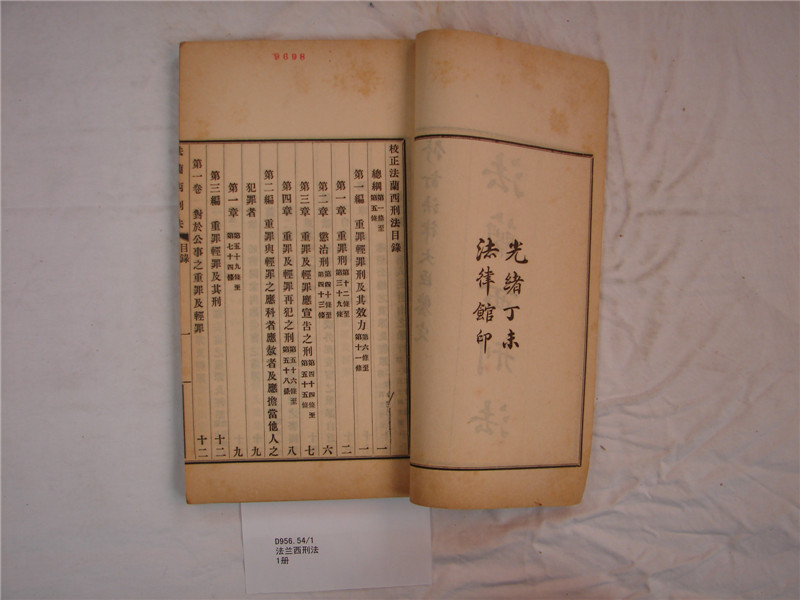 光緒丁未
法律館印
9698
校正法蘭西刑法目錄
總綱 第一條至第五條 一
第一編 重罪輕罪刑及其效力 第六條至第十一條 一
第一章 重罪刑 第十二條至第三十九條 二
第二章 懲治刑 第四十條至第四十三條 六
第三章 重罪及輕罪應宣告之刑 第四十四條至第五十五條 七
第四章 重罪及輕罪再犯之刑 第五十六條至第五十八條 八
第二編 重罪與輕罪之應科者應赦者及應擔當他人之
犯罪者 九
第一章 第五十九條至第七十四條 九
第三編 重罪輕罪及其刑 十二
第一卷 對於公事之重罪及輕罪 十二
法蘭西刑法 目錄 一
D956.54/1
法兰西刑法
1册